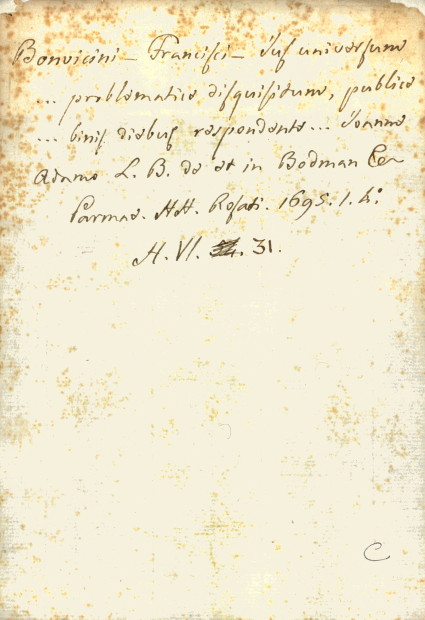 Bonvicini – Francisci – Jus universum
... problematice disquisitum, publice
... binis diebus respondente... Joanne
Adamo L. B. de et in Bodman
Parmae. HH. Rosati. 1695. 1. 4.°
H. VI. 31.
C